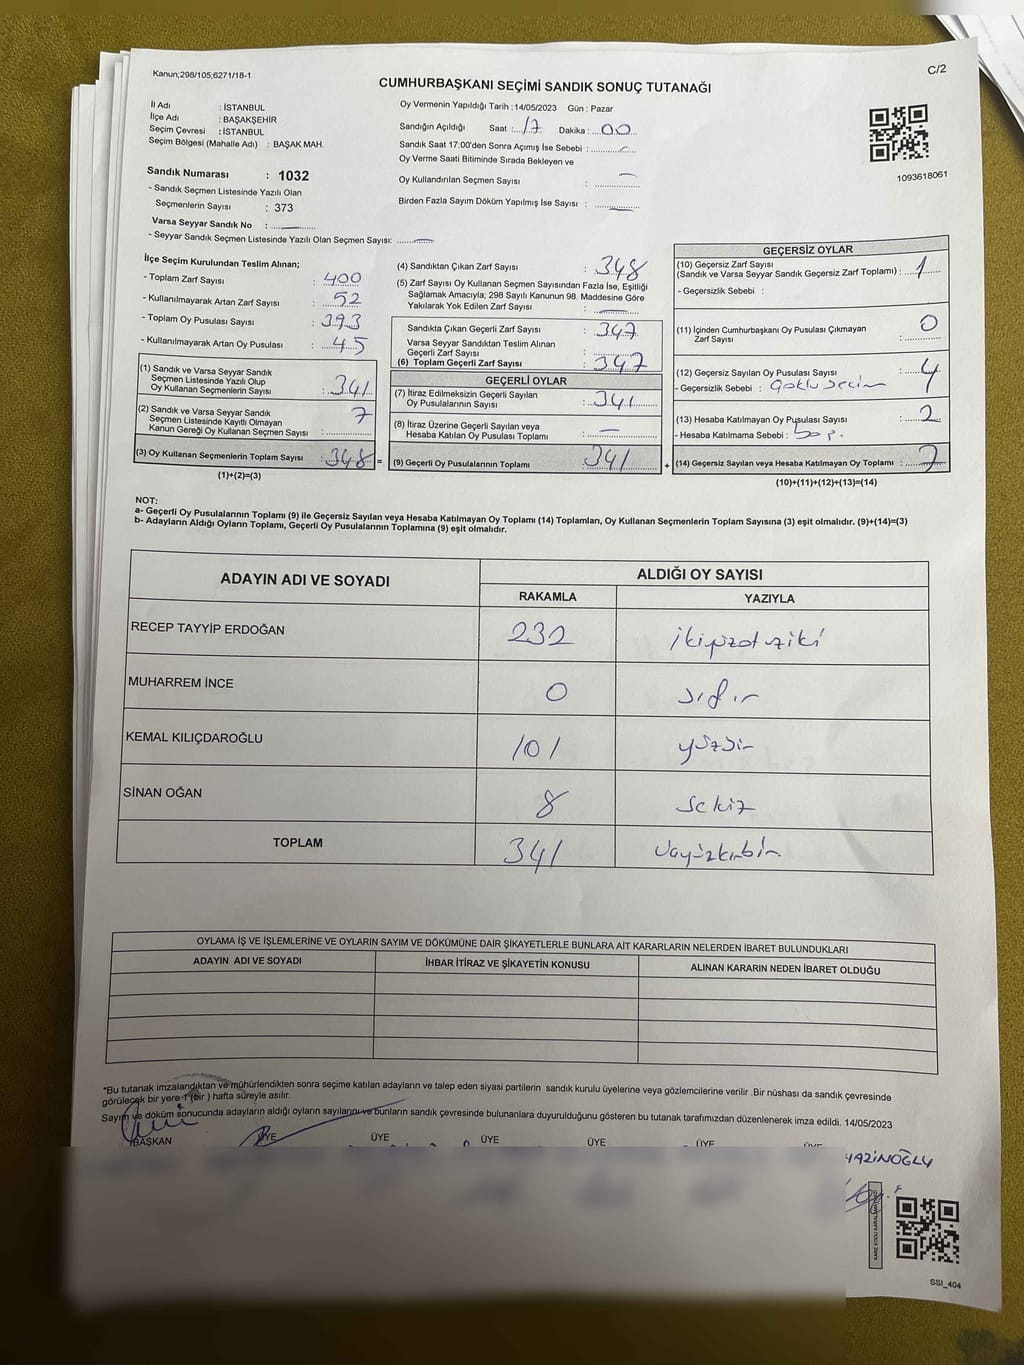 Kanun;298/105,6271/18-1
C/2
CUMHURBAŞKANI SEÇİMİ SANDIK SONUÇ TUTANAĞI
İl Adı : İSTANBUL
İlçe Adı : BAŞAKŞEHİR
Seçim Çevresi : İSTANBUL
Seçim Bölgesi (Mahalle Adı) : BAŞAK MAH.
Sandık Numarası : 1032
- Sandık Seçmen Listesinde Yazılı Olan
Seçmenlerin Sayısı : 373
Varsa Seyyar Sandık No :
- Seyyar Sandık Seçmen Listesinde Yazılı Olan Seçmen Sayısı:
Oy Vermenin Yapıldığı Tarih :14/05/2023 Gün : Pazar
Sandığın Açıldığı Saat : 17 Dakika : 00
Sandık Saat 17:00'den Sonra Açımış İse Sebebi :
Oy Verme Saati Bitiminde Sırada Bekleyen ve
Oy Kullandırılan Seçmen Sayısı : —
Birden Fazla Sayım Döküm Yapılmış İse Sayısı : —
1093618061
İlçe Seçim Kurulundan Teslim Alınan;
- Toplam Zarf Sayısı : 400
- Kullanılmayarak Artan Zarf Sayısı : 52
- Toplam Oy Pusulası Sayısı : 393
- Kullanılmayarak Artan Oy Pusulası : 45
(1) Sandık ve Varsa Seyyar Sandık
Seçmen Listesinde Yazılı Olup
Oy Kullanan Seçmenlerin Sayısı : 341
(2) Sandık ve Varsa Seyyar Sandık
Seçmen Listesinde Kayıtlı Olmayan
Kanun Gereği Oy Kullanan Seçmen Sayısı : 7
(3) Oy Kullanan Seçmenlerin Toplam Sayısı : 348 =
(1)+(2)=(3)
(4) Sandıktan Çıkan Zarf Sayısı : 348
(5) Zarf Sayısı Oy Kullanan Seçmen Sayısından Fazla İse, Eşitliği
Sağlamak Amacıyla; 298 Sayılı Kanunun 98. Maddesine Göre
Yakılarak Yok Edilen Zarf Sayısı : —
Sandıkta Çıkan Geçerli Zarf Sayısı : 347
Varsa Seyyar Sandıktan Teslim Alınan
Geçerli Zarf Sayısı :
(6) Toplam Geçerli Zarf Sayısı : 347
GEÇERLİ OYLAR
(7) İtiraz Edilmeksizin Geçerli Sayılan
Oy Pusulalarının Sayısı : 341
(8) İtiraz Üzerine Geçerli Sayılan veya
Hesaba Katılan Oy Pusulası Toplamı : —
(9) Geçerli Oy Pusulalarının Toplamı : 341 +
GEÇERSİZ OYLAR
(10) Geçersiz Zarf Sayısı
(Sandık ve Varsa Seyyar Sandık Geçersiz Zarf Toplamı) : 1
- Geçersizlik Sebebi :
(11) İçinden Cumhurbaşkanı Oy Pusulası Çıkmayan
Zarf Sayısı : 0
(12) Geçersiz Sayılan Oy Pusulası Sayısı : 4
- Geçersizlik Sebebi : Çoklu seçim
(13) Hesaba Katılmayan Oy Pusulası Sayısı : 2
- Hesaba Katılmama Sebebi :
(14) Geçersiz Sayılan veya Hesaba Katılmayan Oy Toplamı : 7
(10)+(11)+(12)+(13)=(14)
NOT:
a- Geçerli Oy Pusulalarının Toplamı (9) ile Geçersiz Sayılan veya Hesaba Katılmayan Oy Toplamı (14) Toplamları, Oy Kullanan Seçmenlerin Toplam Sayısına (3) eşit olmalıdır. (9)+(14)=(3)
b- Adayların Aldığı Oyların Toplamı, Geçerli Oy Pusulalarının Toplamına (9) eşit olmalıdır.
ADAYIN ADI VE SOYADI ALDIĞI OY SAYISI
RAKAMLA YAZIYLA
RECEP TAYYİP ERDOĞAN 232
MUHARREM İNCE 0 sıfır
KEMAL KILIÇDAROĞLU 101 yüzbir
SİNAN OĞAN 8 sekiz
TOPLAM 341 üçyüzkırkbir
OYLAMA İŞ VE İŞLEMLERİNE VE OYLARIN SAYIM VE DÖKÜMÜNE DAİR ŞİKAYETLERLE BUNLARA AİT KARARLARIN NELERDEN İBARET BULUNDUKLARI
ADAYIN ADI VE SOYADI İHBAR İTİRAZ VE ŞİKAYETİN KONUSU ALINAN KARARIN NEDEN İBARET OLDUĞU
*Bu tutanak imzalandıktan ve mühürlendikten sonra seçime katılan adayların ve talep eden siyasi partilerin sandık kurulu üyelerine veya gözlemcilerine verilir .Bir nüshası da sandık çevresinde
görülecek bir yere 1 (bir ) hafta süreyle asılır.
Sayım ve döküm sonucunda adayların aldığı oyların sayılarını ve bunların sandık çevresinde bulunanlara duyurulduğunu gösteren bu tutanak tarafımızdan düzenlenerek imza edildi. 14/05/2023
BAŞKAN ÜYE ÜYE ÜYE ÜYE ÜYE ÜYE
YAZİNOĞLU
SSI_404